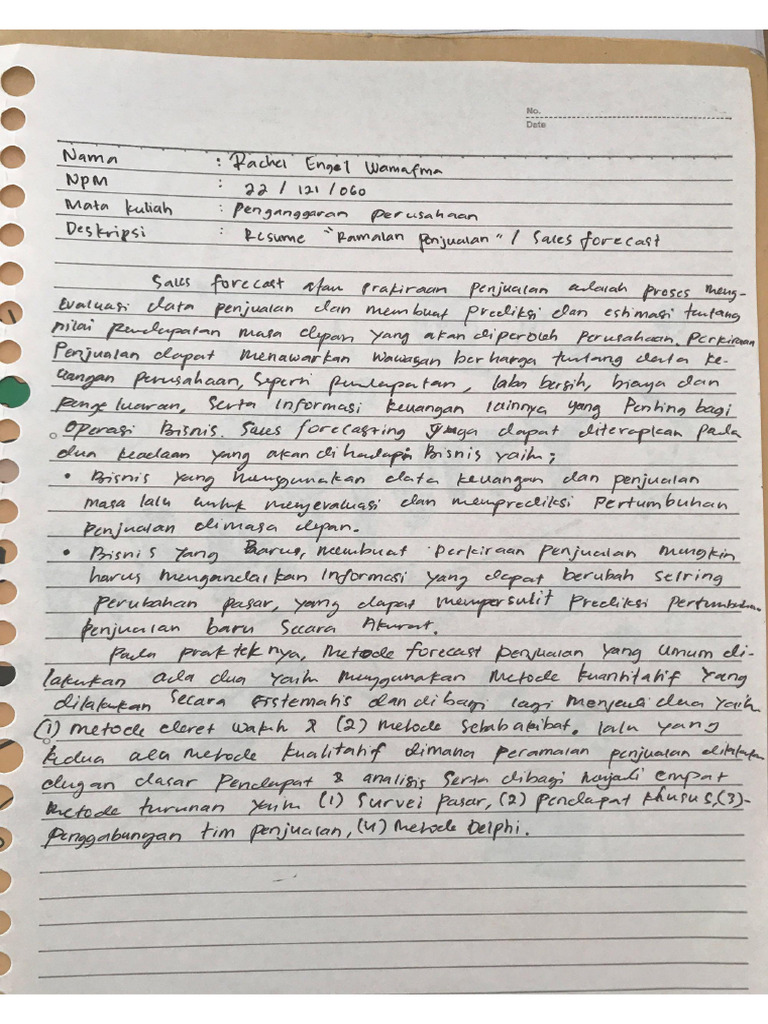 No.
Date
Nama : Rachel Engel Wamafma
NPM : 22 / 121 / 060
Mata kuliah : Penganggaran perusahaan
Deskripsi : Resume "Ramalan penjualan" / Sales forecast
Sales forecast atau prakiraan penjualan adalah proses meng-
evaluasi data penjualan dan membuat prediksi dan estimasi tentang
nilai pendapatan masa depan yang akan diperoleh perusahaan. Perkiraan
Penjualan dapat menawarkan wawasan berharga tentang data ke-
uangan perusahaan, seperti pendapatan, laba bersih, biaya dan
pengeluaran, serta informasi keuangan lainnya yang Penting bagi
Operasi Bisnis. Sales forecasting juga dapat diterapkan pada
dua keadaan yang akan dihadapi Bisnis yaitu;
• Bisnis yang menggunakan data keuangan dan penjualan
masa lalu untuk mengevaluasi dan memprediksi Pertumbuhan
Penjualan dimasa depan.
• Bisnis yang Barus, membuat perkiraan penjualan mungkin
harus mengandalkan informasi yang dapat berubah seiring
perubahan pasar, yang dapat mempersulit prediksi Pertumbuhan
penjualan baru secara Akurat.
Pada prakteknya, metode forecast penjualan yang umum di-
lakukan ada dua yaitu menggunakan metode kuantitatif yang
dilakukan secara sistematis dan dibagi lagi menjadi dua yaitu
(1) metode deret waktu & (2) metode sebab akibat. lalu yang
kedua ada metode kualitatif dimana peramalan penjualan dilakukan
dengan dasar Pendapat & analisis serta dibagi menjadi empat
metode turunan yaitu (1) survei pasar, (2) pendapat khusus, (3)-
Penggabungan tim penjualan, (4) metode Delphi.